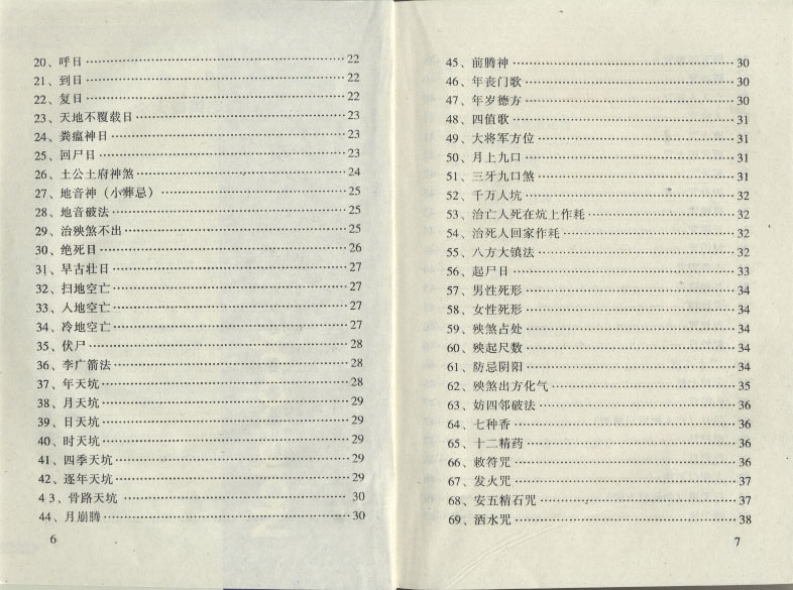 20、呼日……22
21、到日……22
22、复日……22
23、天地不覆载日……23
24、粪瘟神日……23
25、回尸日……23
26、土公土府神煞……24
27、地音神（小葬忌）……25
28、地音破法……25
29、治殃煞不出……25
30、绝死日……26
31、早古壮日……27
32、扫地空亡……27
33、人地空亡……27
34、冷地空亡……27
35、伏尸……28
36、李广箭法……28
37、年天坑……28
38、月天坑……29
39、日天坑……29
40、时天坑……29
41、四季天坑……29
42、逐年天坑……29
4 3、骨路天坑……30
44、月崩腾……30
6
45、前腾神……30
46、年丧门歌……30
47、年岁德方……30
48、四值歌……31
49、大将军方位……31
50、月上九口……31
51、三牙九口煞……31
52、千万人坑……32
53、治亡人死在炕上作耗……32
54、治死人回家作耗……32
55、八方大镇法……32
56、起尸日……33
57、男性死形……34
58、女性死形……34
59、殃煞占处……34
60、殃起尺数……34
61、防忌阴阳……34
62、殃煞出方化气……35
63、妨四邻破法……36
64、七种香……36
65、十二精药……36
66、敕符咒……36
67、发火咒……37
68、安五精石咒……37
69、洒水咒……38
7